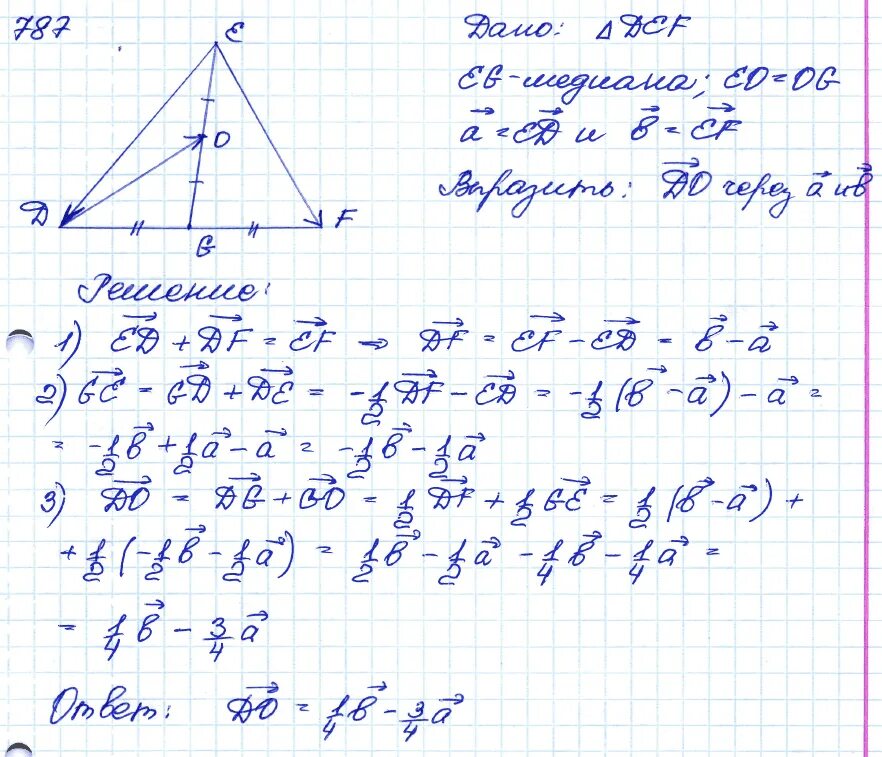 787
E
O
D
G
F
Дано: △DEF
EG-медиана; EO=OG
a⃗ = ED⃗ и b⃗ = EF⃗
Выразить: DO⃗ через a⃗ и b⃗
Решение:
1) ED⃗ + DF⃗ = EF⃗ ⇒ DF⃗ = EF⃗ - ED⃗ = b⃗ - a⃗
2) GE⃗ = GD⃗ + DE⃗ = -1/2 DF⃗ - ED⃗ = -1/2 (b⃗ - a⃗) - a⃗ =
= -1/2 b⃗ + 1/2 a⃗ - a⃗ = -1/2 b⃗ - 1/2 a⃗
3) DO⃗ = DG⃗ + GO⃗ = 1/2 DF⃗ + 1/2 GE⃗ = 1/2 (b⃗ - a⃗) +
+ 1/2 (-1/2 b⃗ - 1/2 a⃗) = 1/2 b⃗ - 1/2 a⃗ - 1/4 b⃗ - 1/4 a⃗ =
= 1/4 b⃗ - 3/4 a⃗
Ответ: DO⃗ = 1/4 b⃗ - 3/4 a⃗